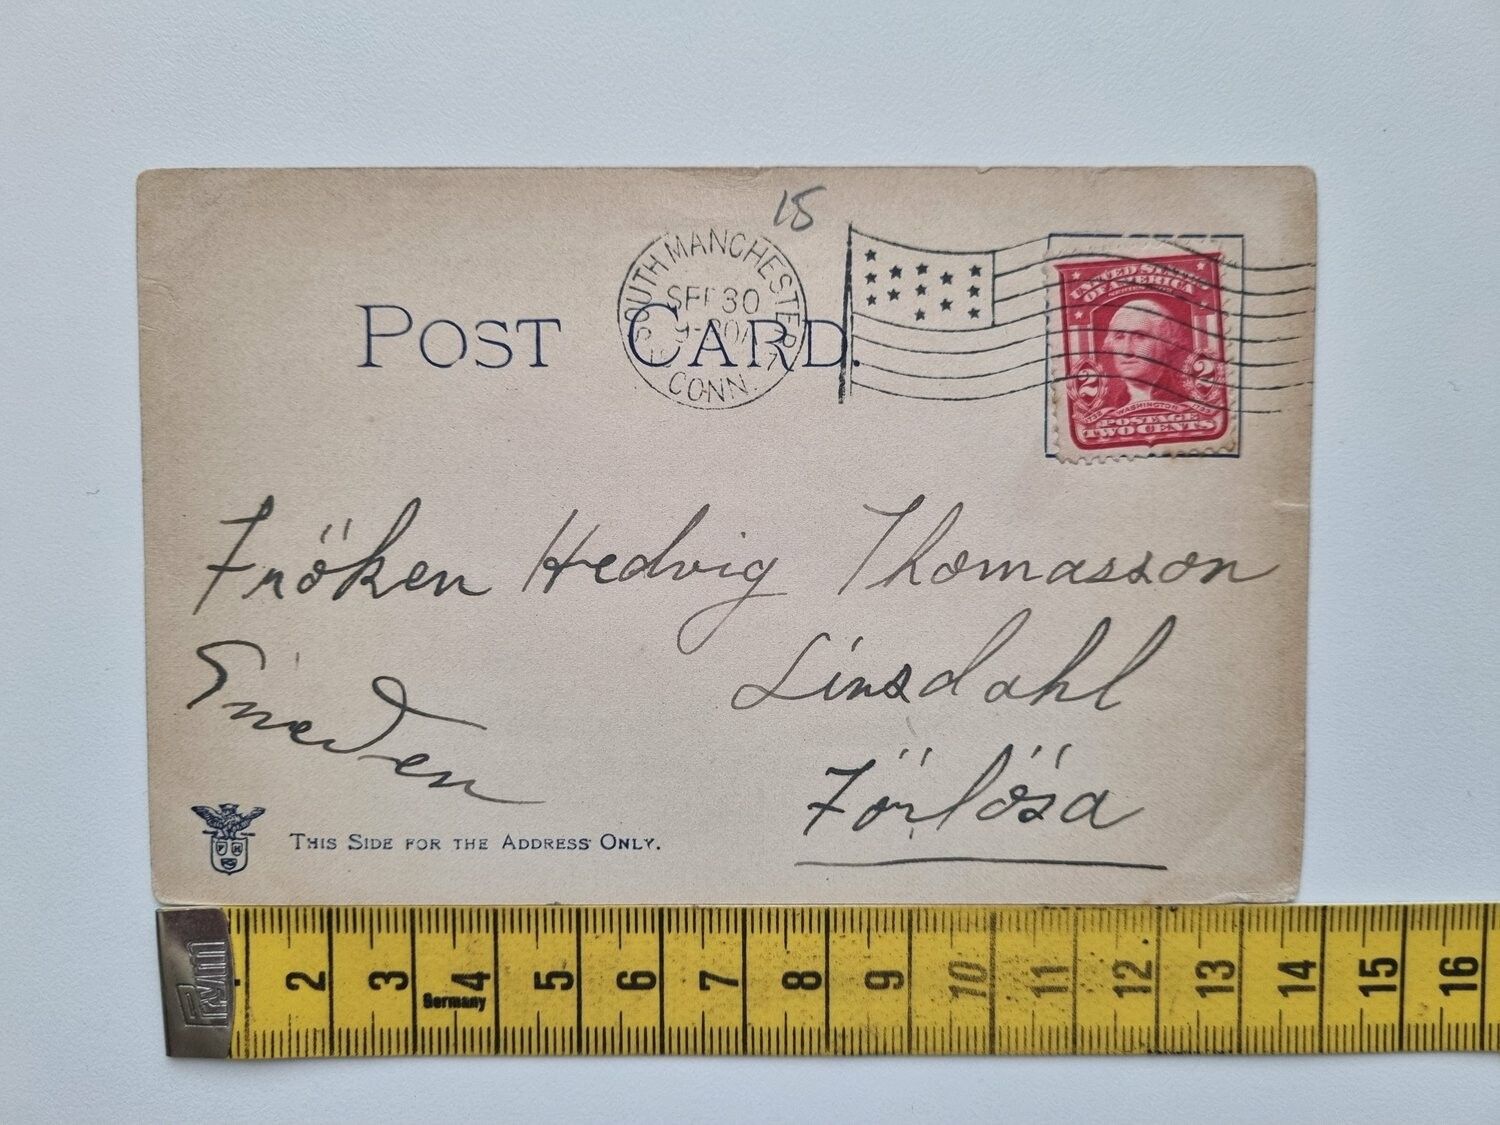 15
SOUTH MANCHESTER
SEP 30
CONN.
POST CARD.
UNITED STATES
OF AMERICA
2 2
WASHINGTON
POSTAGE
TWO CENTS
Fröken Hedvig Thomasson
Linsdahl
Sweden
Förlösa
THIS SIDE FOR THE ADDRESS ONLY.
Prym
2 3 4 5 6 7 8 9 10 11 12 13 14 15 16
Germany